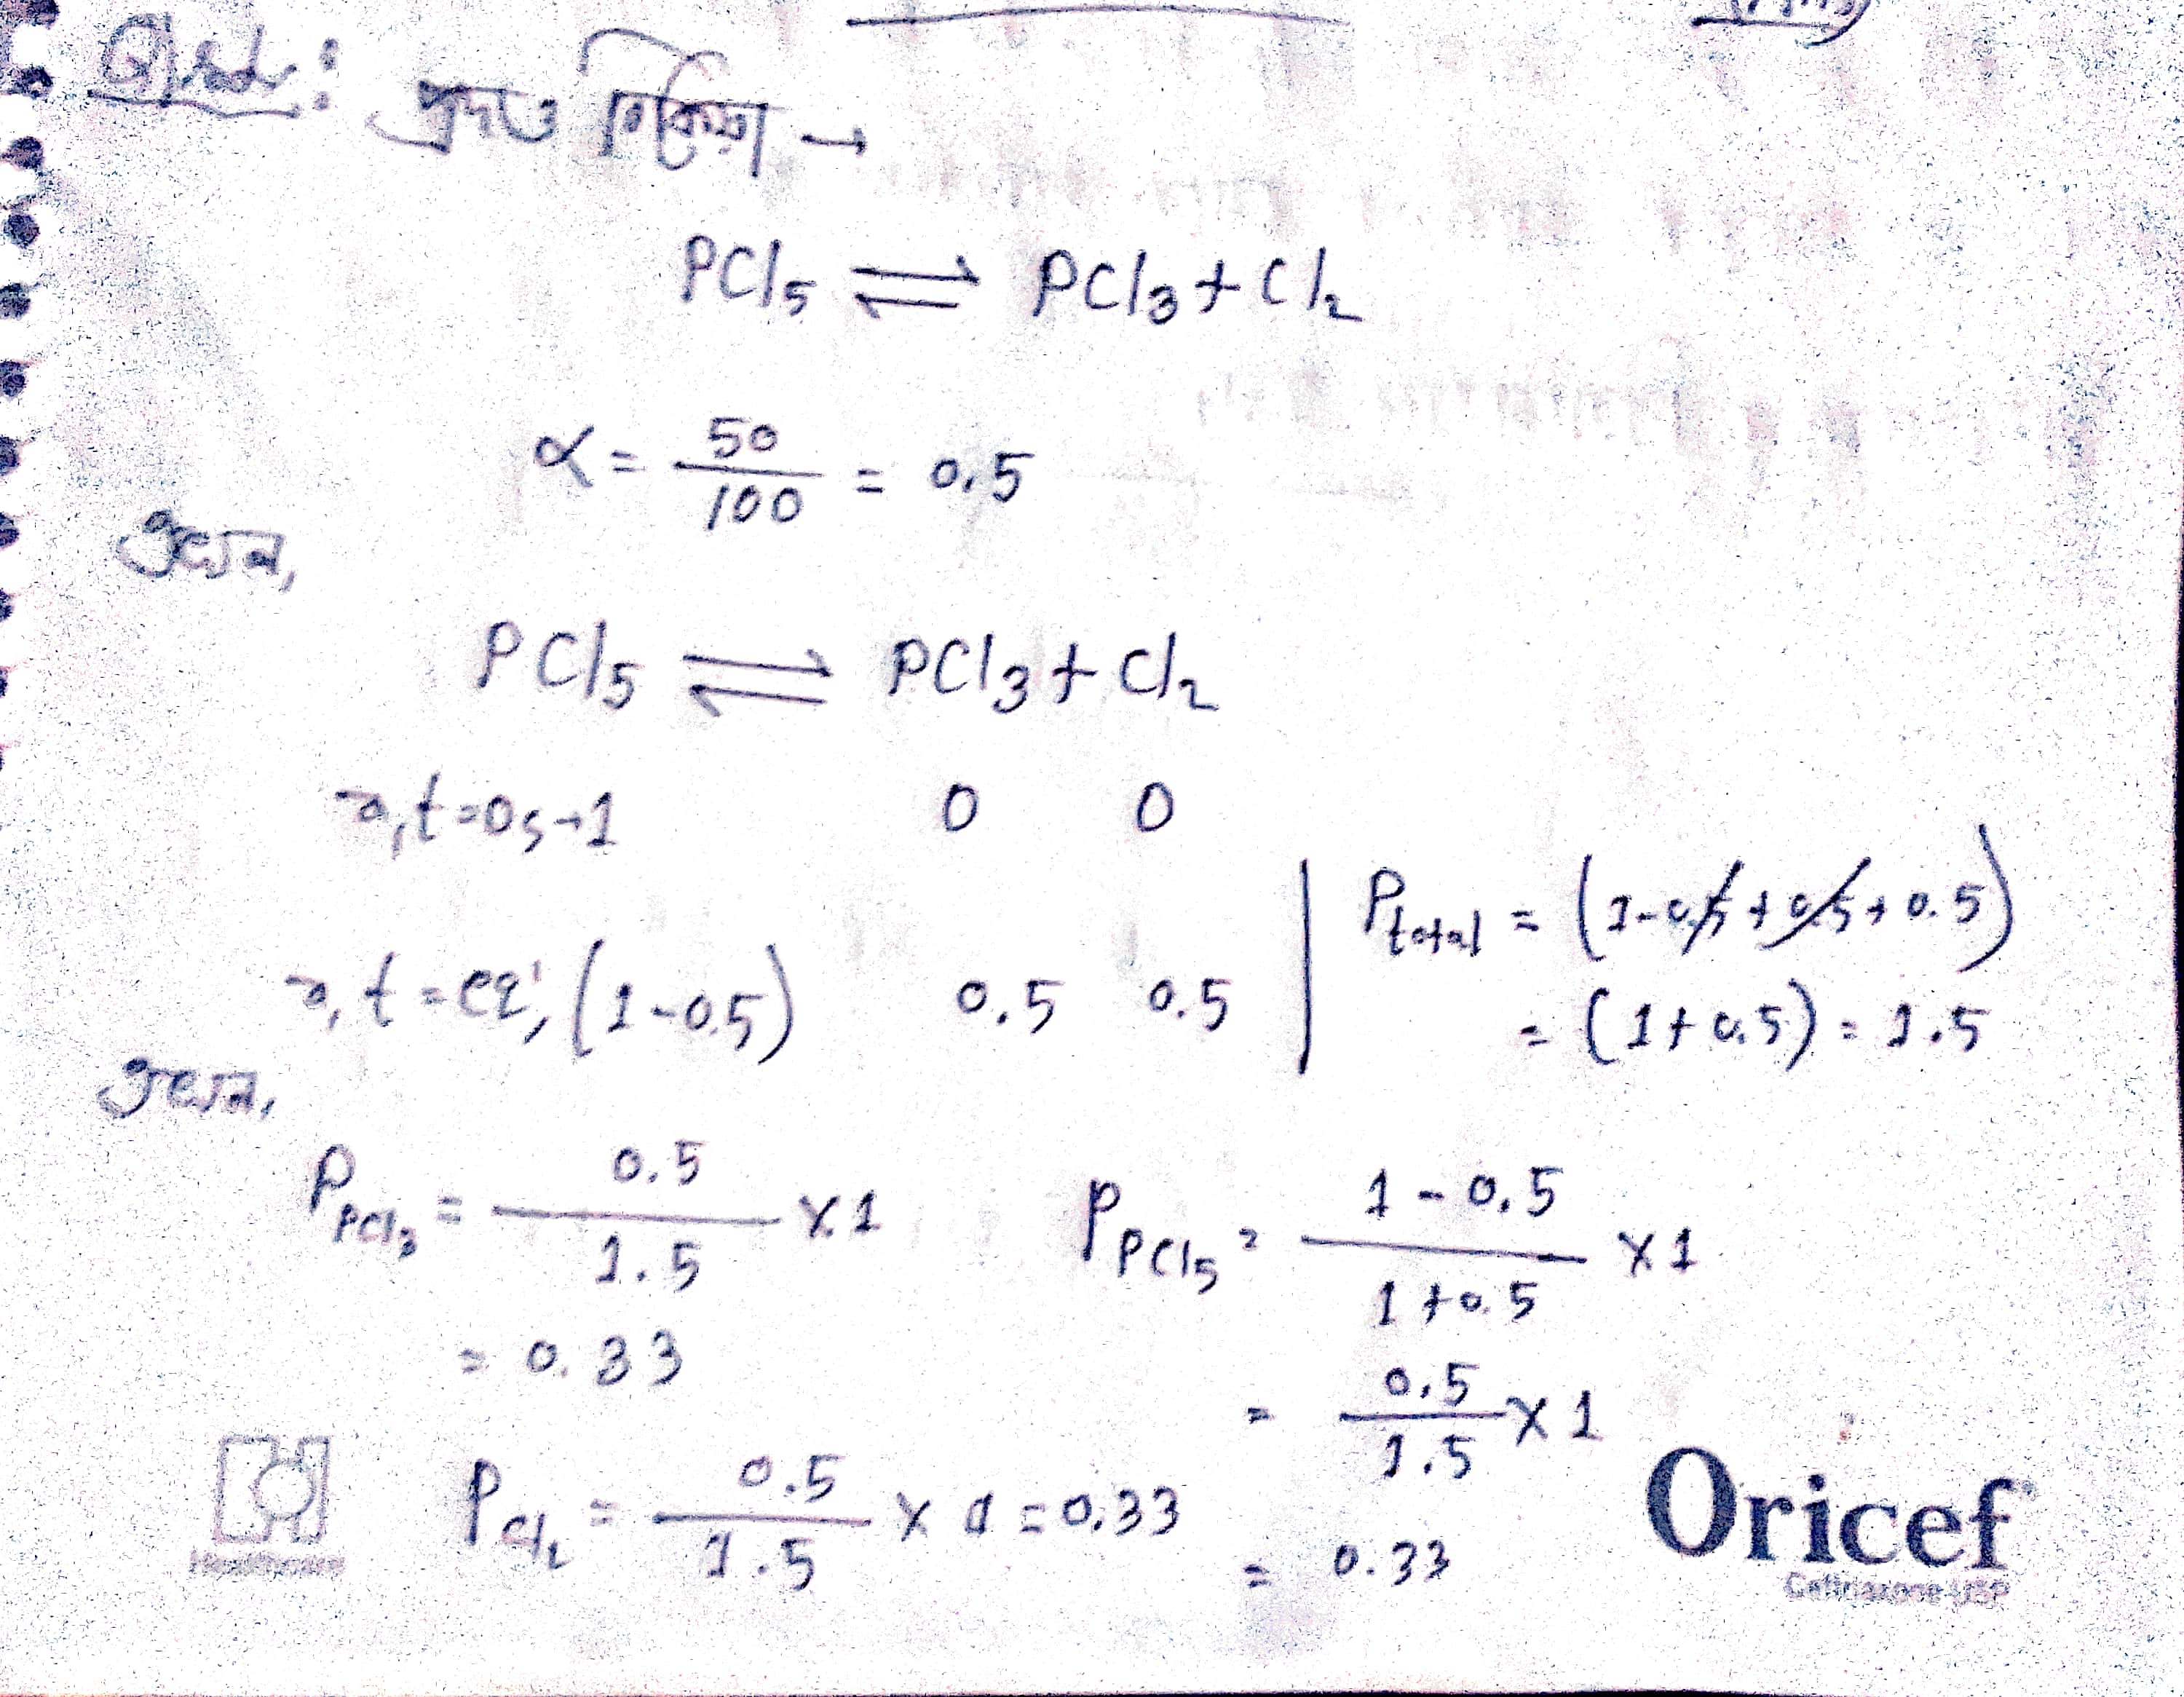 প্রদত্ত বিক্রিয়া →
PCl₅ ⇌ PCl₃ + Cl₂
α = 50/100 = 0.5
PCl₅ ⇌ PCl₃ + Cl₂
t=0s → 1 0 0
t = eq, (1-0.5) 0.5 0.5
P_total = (1-0.5+0.5+0.5)
= (1+0.5) = 1.5
P_PCl₃ = 0.5/1.5 × 1
= 0.33
P_PCl₅ = (1-0.5)/(1+0.5) × 1
= 0.5/1.5 × 1
= 0.33
P_Cl₂ = 0.5/1.5 × 1 = 0.33
Healthcare
Oricef
Ceftriaxone USP